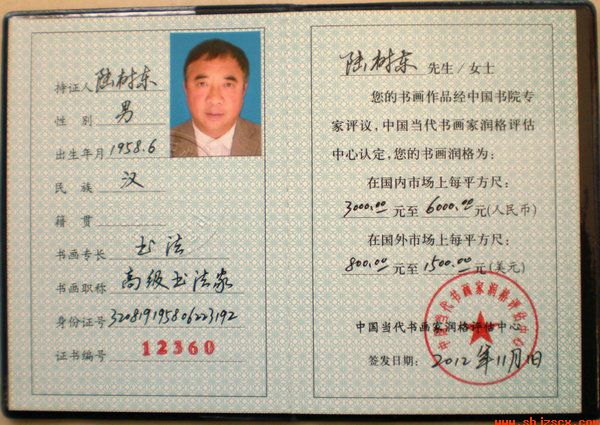 持证人 陆树东
性 别 男
出生年月 1958.6
民 族 汉
籍 贯
书画专长 书法
书画职称 高级书法家
身份证号
证书编号 12360
陆树东 先生/女士
您的书画作品经中国书院专
家评议，中国当代书画家润格评估
中心认定，您的书画润格为：
在国内市场上每平方尺：
3000.00 元至 6000.00 元(人民币)
在国外市场上每平方尺：
800.00 元至 1500.00 元(美元)
中国当代书画家润格评估中心
中国当代书画家润格评估中心
签发日期： 2012年11月1日
www.shjzscx.com